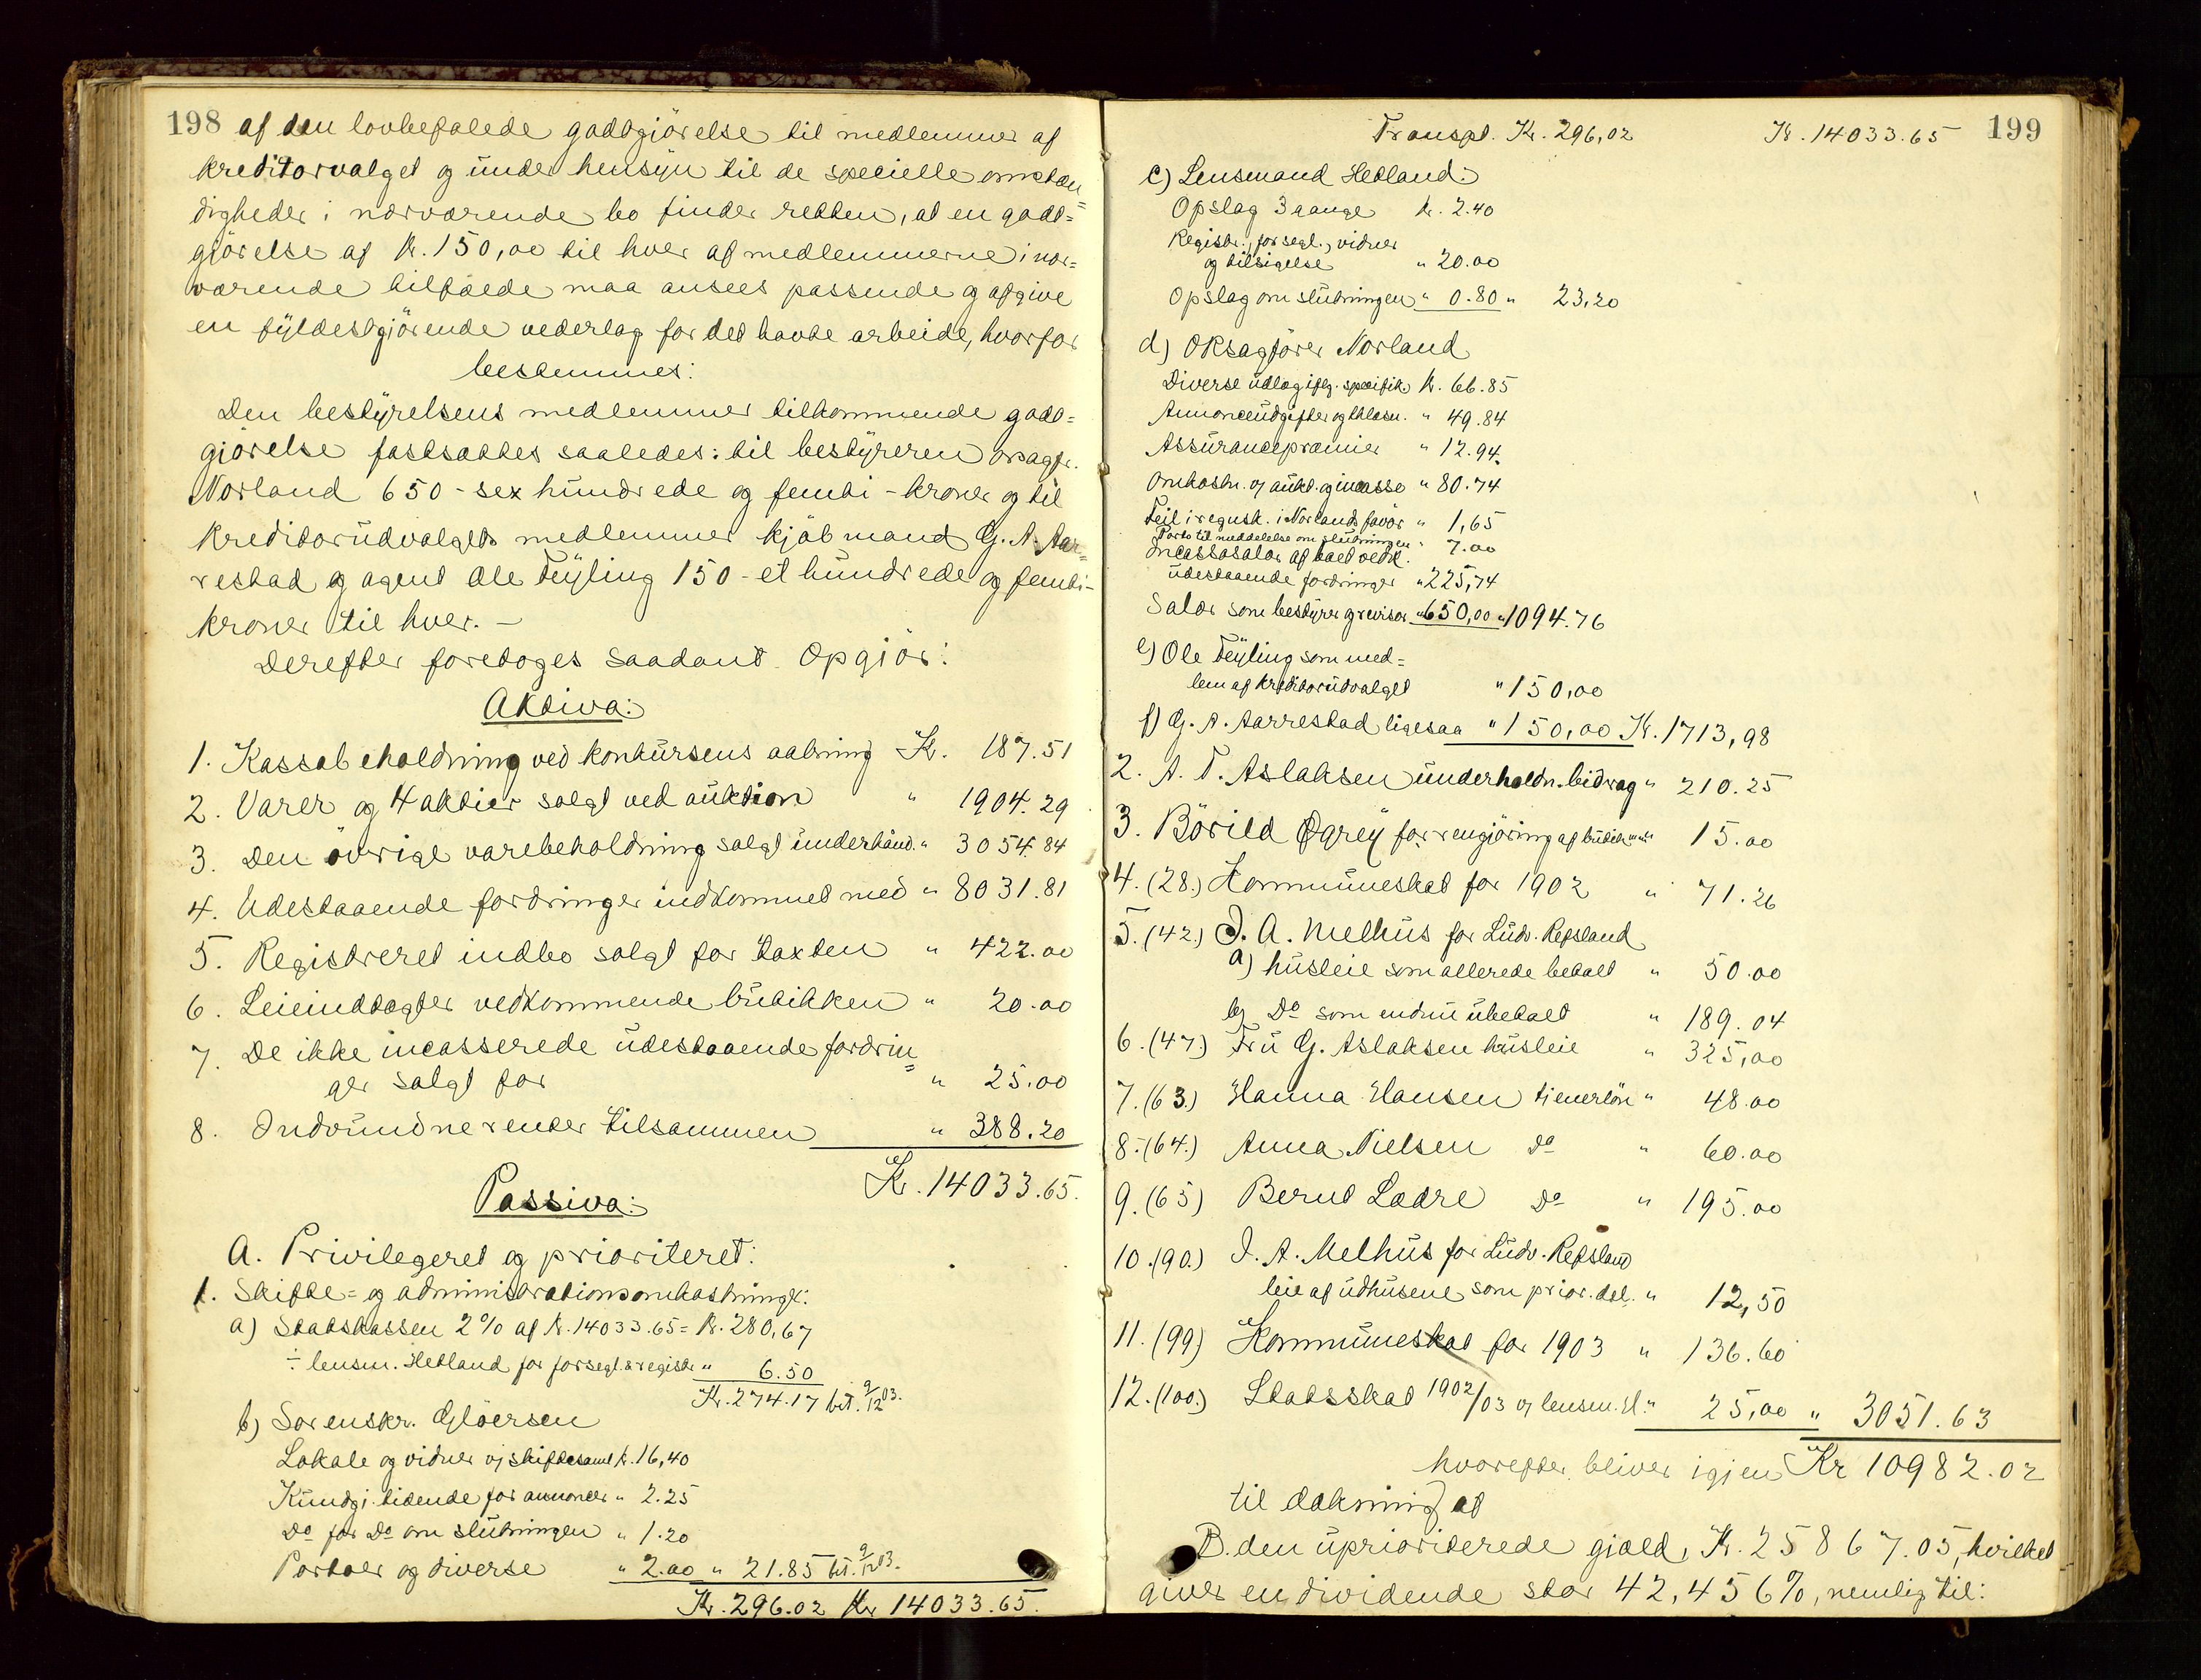 198 af den lovbefalede godtgjörelse til medlemmer af
kreditorvalget og under hensyn til de specielle omstæn=
digheder i nærværende bo finder retten, at en godt=
gjörelse af Kr. 150,00 til hver af medlemmerne i nær=
værende tilfælde maa ansees passende og afgive
en fyldestgjörende vederlag for det havte arbeide, hvorfor
bestemmes:
Den bestyrelsens medlemmer tilkommende godt=
gjörelse fastsættes saaledes: til bestyreren osagfr.
Norland 650 - sex hundrede og femti - kroner og til
kreditorudvalgets medlemmer kjöbmand G. A. Aar=
restad og agent Ole Feyling 150 - et hundrede og femti -
kroner til hver. -
Derefter foretoges saadant Opgjör:
Aktiva:
1. Kassabeholdning ved konkursens aabning Kr. 187.51
2. Varer og 4 aktier solgt ved auktion " 1904.29
3. Den övrige varebeholdning solgt underhånd. " 3054.84
4. Udestaaende fordringer indkommet med " 8031.81
5. Registreret indbo solgt for taxten " 422.00
6. Leieindtægter vedkommende butikken " 20.00
7. De ikke incasserede udestaaende fordrin=
ger solgt for " 25.00
8. Indvundne renter tilsammen " 388.20
Kr. 14033.65.
Passiva:
A. Privilegeret og prioriteret:
1. Skifte= og administrationsomkostninger:
a) Statskassen 2% af Kr. 14033.65 = Kr. 280,67
÷ lensm. Hetland for forsegl. & registr " 6.50
Kr. 274.17 bet. 9/12 03.
b) Sorenskr. Gloersen
Lokale og vidner v/ skiftesaml Kr. 16,40
Kundgj. tidende for annoncer " 2.25
Do for Do om slutningen " 1.20
Portoer og diverse " 2.00 " 21.85 bet. 9/12 03.
Kr. 296.02 Kr 14033.65.
Transpt. Kr. 296,02 Kr. 14033.65 199
c) Lensmand Hetland:
Opslag 3 gange Kr. 2.40
Registr., forsegl., vidner
og tilsigelse " 20.00
Opslag om slutningen " 0.80 " 23,20
d) OKsagförer Norland
Diverse udlæg iflg. specifik. Kr. 66.85
Annonceudgifter og " 49.84
Assurancepræmier " 12.94
Omkostn. v/ aukt. og incasso " 80.74
Feil i regnsk. i Norlands favör " 1,65
Porto til meddelelse om slutningen " 7.00
Incassosalær af vedk.
udestaaende fordringer " 225,74
Salær som bestyrer og revisor " 650,00 " 1094.76
e) Ole Feyling som med=
lem af kreditorudvalget " 150,00
f) G. A. Aarrestad ligesaa " 150,00 Kr. 1713,98
2. A. T. Aslaksen underholdn. bidrag " 210.25
3. Börild Ogrey for rengjöring af butik " 15.00
4. (28.) Kommuneskat for 1902 " 71.26
5. (42.) J. A. Melhus for Ludv. Refsland
a) husleie som allerede betalt " 50.00
b) Do som endnu ubetalt " 189.04
6. (47.) Fru G. Aslaksen husleie " 325,00
7. (63.) Hanna Hansen tjenerlön " 48.00
8. (64.) Anna Nielsen do " 60.00
9. (65) Bernt Ladre Do " 195.00
10. (90.) J. A. Melhus for Ludv. Refsland
leie af udhusene som prior. del. " 12,50
11. (99) Kommuneskat for 1903 " 136.60
12. (100.) Statsskat 1902/03 v/ lensm. H. " 25,00 " 3051.63
hvorefter bliver igjen Kr 10982.02
til dækning af
B. den uprioriterede gjæld, Kr. 25867.05, hvilket
giver en dividende stor 42,456%, nemlig til: